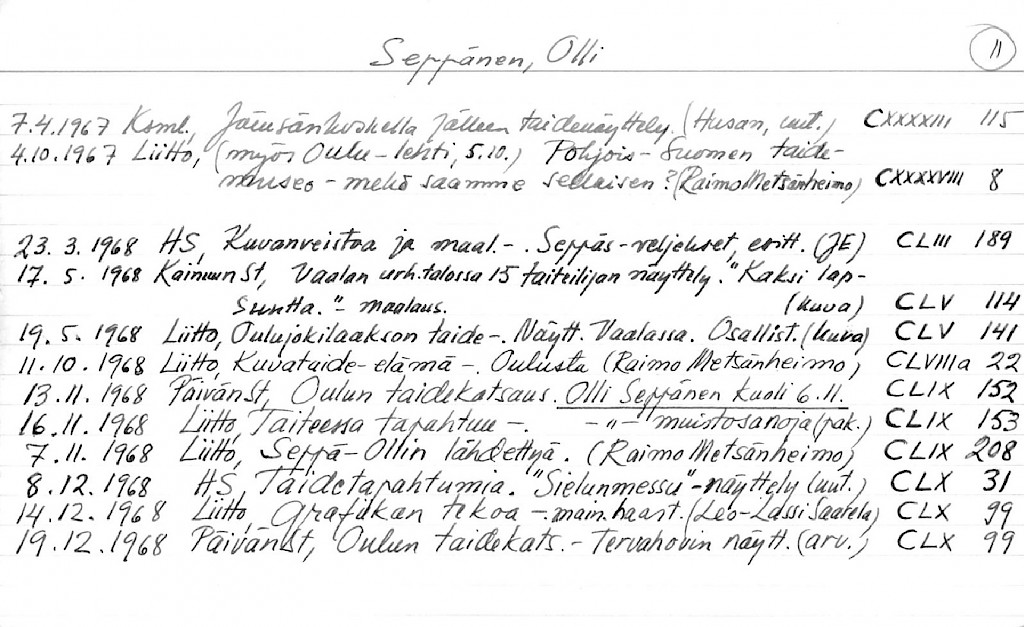 Seppänen, Olli 11
7.4.1967 Ksml., Jämsänkoskella jälleen taidenäyttely. (Husan, uut.) CXXXXIII 115
4.10.1967 Liitto, (myös Oulu-lehti, 5.10.) Pohjois-Suomen taide-
museo - mekö saamme sellaisen? (Raimo Metsänheimo) CXXXXVIII 8
23. 3. 1968 HS, Kuvanveistoa ja maal.-. Seppäs-veljekset, esitt. (JE) CLIII 189
17. 5. 1968 KainuunSt, Vaalan urh.talossa 15 taiteilijan näyttely. "Kaksi lap-
suutta."- maalaus. (kuva) CLV 114
19. 5. 1968 Liitto, Oulujokilaakson taide-. Näytt. Vaalassa. Osallist. (kuva) CLV 141
11. 10. 1968 Liitto, Kuvataide-elämä-. Oulusta (Raimo Metsänheimo) CLVIIIa 22
13. 11. 1968 PäivänSt, Oulun taidekatsaus. Olli Seppänen kuoli 6.11. CLIX 152
16. 11. 1968 Liitto, Taiteessa tapahtuu-. -"- muistosanoja (pak.) CLIX 153
7. 11. 1968 Liitto, Seppä-Ollin lähdettyä. (Raimo Metsänheimo) CLIX 208
8. 12. 1968 HS, Taidetapahtumia. "Sielunmessu"-näyttely (uut.) CLX 31
14. 12. 1968 Liitto, Grafiikan tekoa -. main. haast. (Leo-Lassi Saarela) CLX 99
19. 12. 1968 PäivänSt, Oulun taidekats.- Tervahovin näytt. (arv.) CLX 99